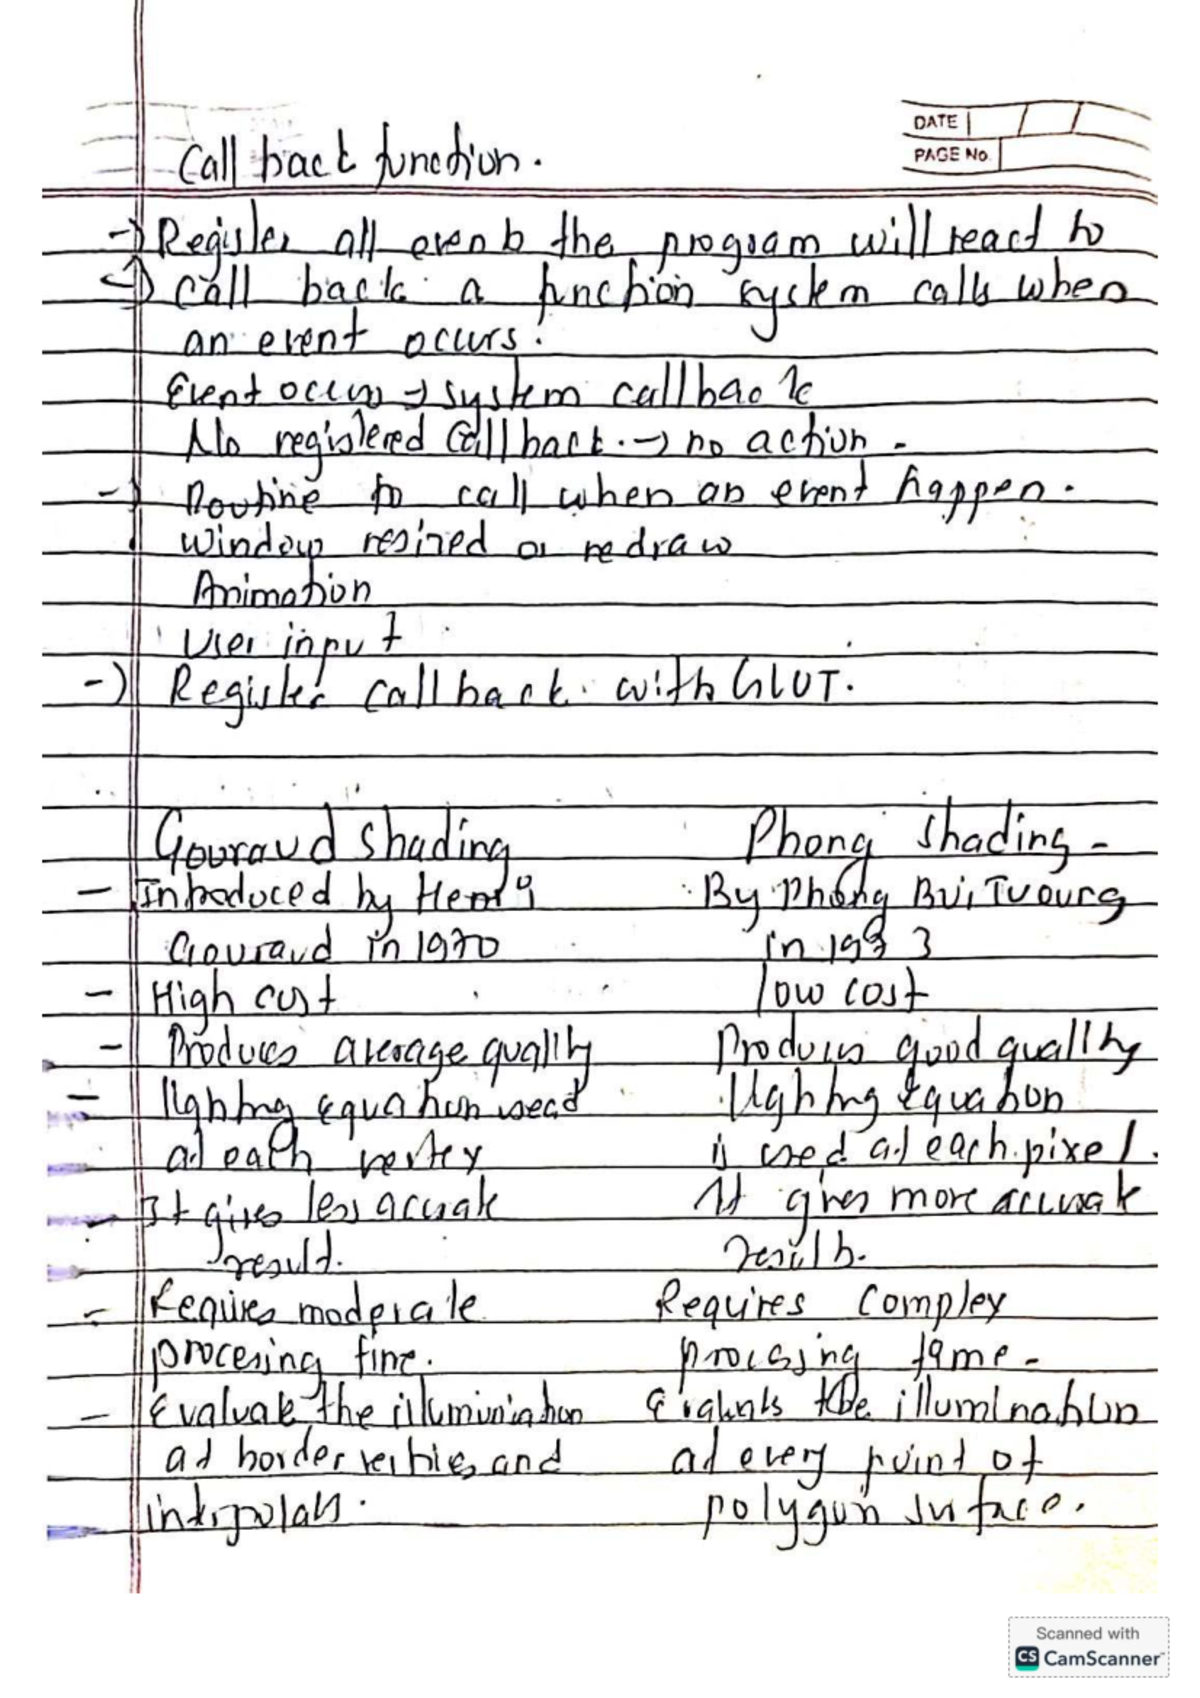 DATE
PAGE No.
Call back function.
-) Register all events the program will react to
-) Call back a function system calls when
an event occurs.
Event occurs → system callback
No registered Callback. → no action -
-) Routine to call when an event happen.
Window resized or redraw
Animation
User input
-) Register callback with GLUT.
Gouraud Shading Phong shading -
- Introduced by Henri By Phong Bui Tuourg
Gouraud in 1970 in 1973
- High cust low cost
- Produces average quality Produces good quality
- lighting equation used lighting Equation
at each vertex is used at each pixel.
- It gives less accurate It gives more accurate
result. results.
- Requires moderate Requires Complex
procesing time. procssing tame -
- Evaluate the illumination Evaluats the illumination
at border verties and at every point of
interpolats. polygon surface.
Scanned with
CS CamScanner